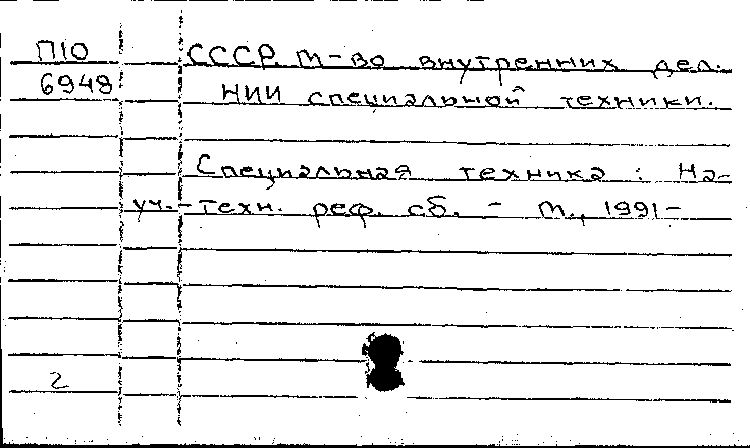 П10 СССР. М-во внутренних дел.
6948 НИИ специальной техники.
Специальная техника : На-
уч.-техн. реф. сб. - М., 1991-
2